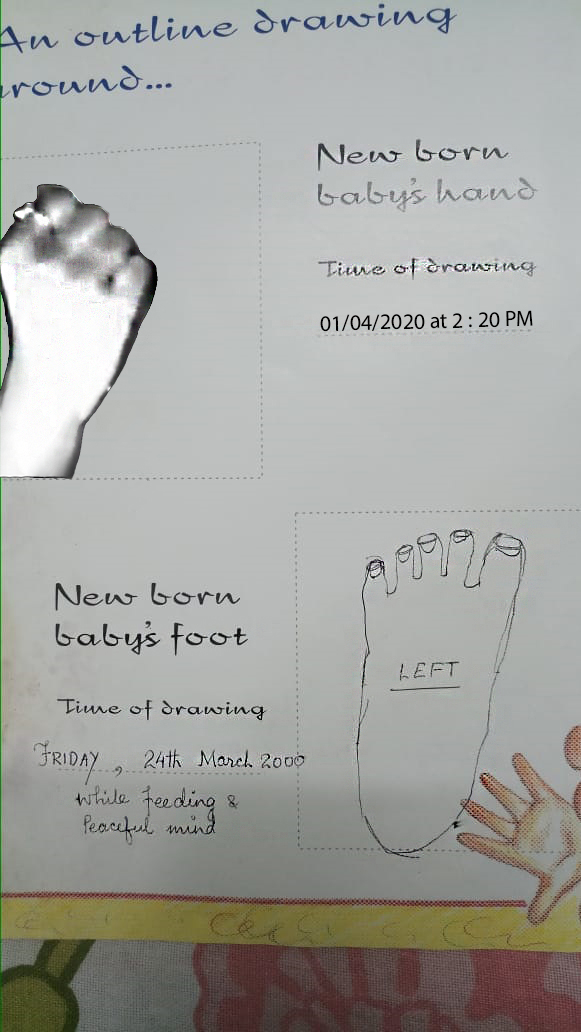 An outline drawing
around...
New born
baby's hand
Time of drawing
01/04/2020 at 2 : 20 PM
New born
baby's foot
Time of drawing
FRIDAY , 24th March 2000
While feeding &
Peaceful mind
LEFT